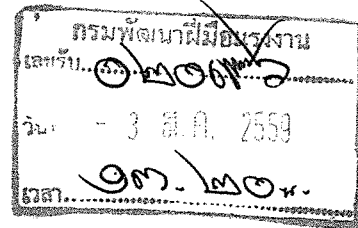 กรมพัฒนาฝีมือแรงงาน
เลขรับ
วัน - 3 มี.ค. 2559
เวลา ๑๓.๒๐ น.